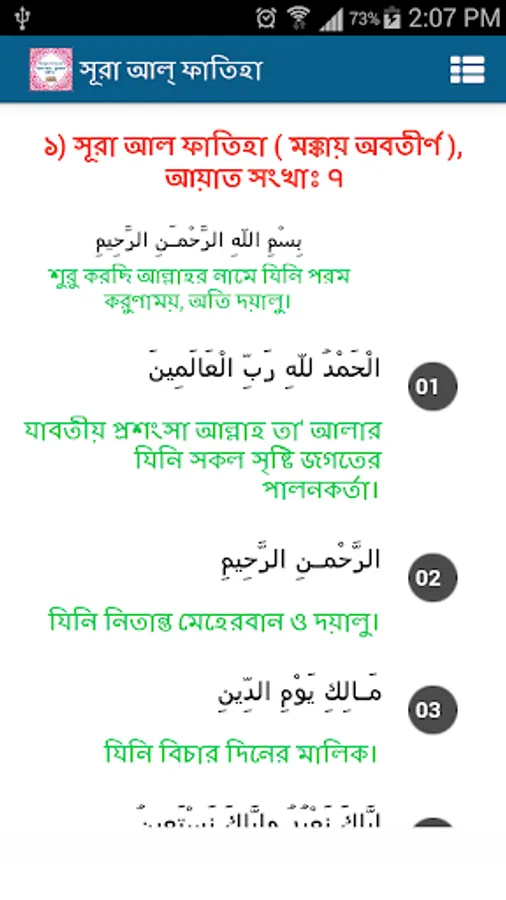 73% 2:07 PM
সূরা আল্ ফাতিহা
১) সূরা আল ফাতিহা ( মক্কায় অবতীর্ণ ),
আয়াত সংখাঃ ৭
بِسْمِ اللهِ الرَّحْمـَنِ الرَّحِيمِ
শুরু করছি আল্লাহর নামে যিনি পরম
করুণাময়, অতি দয়ালু।
الْحَمْدُ للّهِ رَبِّ الْعَالَمِينَ
01
যাবতীয় প্রশংসা আল্লাহ তা' আলার
যিনি সকল সৃষ্টি জগতের
পালনকর্তা।
الرَّحْمـنِ الرَّحِيمِ
02
যিনি নিতান্ত মেহেরবান ও দয়ালু।
مَـالِكِ يَوْمِ الدِّينِ
03
যিনি বিচার দিনের মালিক।
إِيَّاكَ نَعْبُدُ وإِيَّاكَ نَسْتَعِينُ